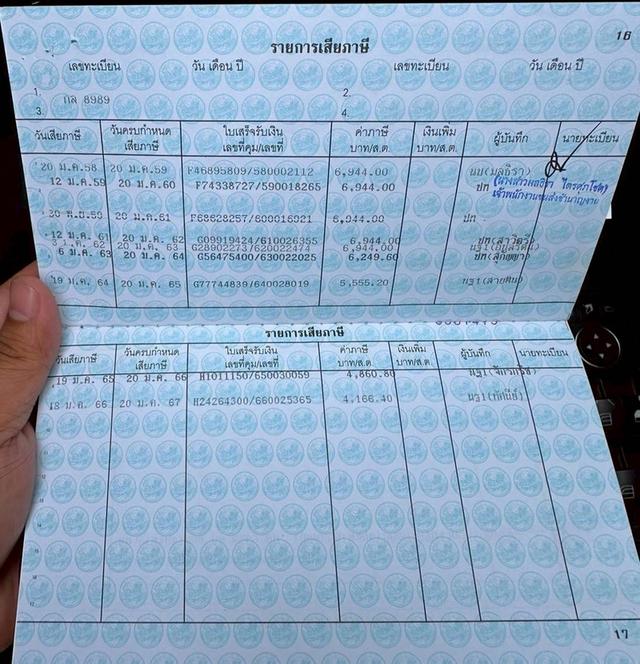 16
รายการเสียภาษี
เลขทะเบียน วัน เดือน ปี เลขทะเบียน วัน เดือน ปี
1. 2.
กล 8989
3. 4.
วันเสียภาษี วันครบกำหนดเสียภาษี ใบเสร็จรับเงิน เลขที่คุม/เลขที่ ค่าภาษี บาท/ส.ต. เงินเพิ่ม บาท/ส.ต. ผู้บันทึก นายทะเบียน
20 ม.ค.58 20 ม.ค.59 F46895809/580002112 6,944.00
12 ม.ค.59 20 ม.ค.60 F74338727/590018265 6,944.00 ปก
เจ้าพนักงานขนส่งชำนาญงาน
20 ม.ค.61 F68628257/600016921 6,944.00 ปก
12 ม.ค. 61 20 ม.ค. 62 G09919424/610026355 6,944.00
ม.ค. 62 20 ม.ค. 63 G28902273/620022474 6,944.00
6 ม.ค. 63 20 ม.ค. 64 G56475400/630022025 6,249.60
19 ม.ค. 64 20 ม.ค. 65 G77744839/640028019 5,555.20
รายการเสียภาษี
วันเสียภาษี วันครบกำหนดเสียภาษี ใบเสร็จรับเงิน เลขที่คุม/เลขที่ ค่าภาษี บาท/ส.ต. เงินเพิ่ม บาท/ส.ต. ผู้บันทึก นายทะเบียน
19 ม.ค. 65 20 ม.ค. 66 H1011150/650030059 4,860.80
18 ม.ค. 66 20 ม.ค. 67 H24264300/660025365 4,166.40
17